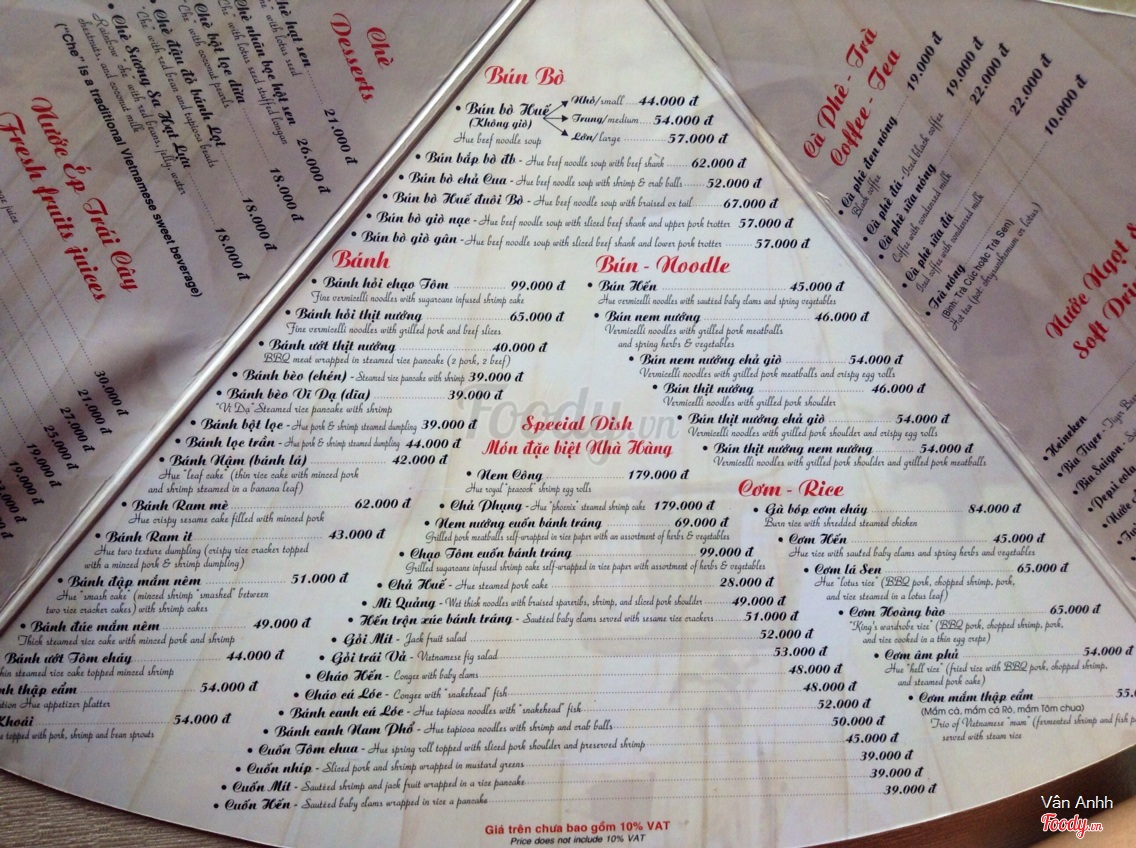 Bún Bò
• Bún bò Huế Nhỏ/small 44.000 đ
(Không giò) Trung/medium 54.000 đ
Hue beef noodle soup Lớn/large 57.000 đ
• Bún bắp bò đb - Hue beef noodle soup with beef shank 62.000 đ
• Bún bò chả Cua - Hue beef noodle soup with shrimp & crab balls 52.000 đ
• Bún bò Huế đuôi Bò - Hue beef noodle soup with braised ox tail 67.000 đ
• Bún bò giò nạc - Hue beef noodle soup with sliced beef shank and upper pork trotter 57.000 đ
• Bún bò giò gân - Hue beef noodle soup with sliced beef shank and lower pork trotter 57.000 đ
Bánh
• Bánh hỏi chạo Tôm 99.000 đ
Fine vermicelli noodles with sugarcane infused shrimp cake
• Bánh hỏi thịt nướng 65.000 đ
Fine vermicelli noodles with grilled pork and beef slices
• Bánh ướt thịt nướng 40.000 đ
BBQ meat wrapped in steamed rice pancake (2 pork, 2 beef)
• Bánh bèo (chén) - Steamed rice pancake with shrimp 39.000 đ
• Bánh bèo Vĩ Dạ (dĩa) 39.000 đ
"Vĩ Dạ" Steamed rice pancake with shrimp
• Bánh bột lọc - Hue pork & shrimp steamed dumpling 39.000 đ
• Bánh lọc trần - Hue pork & shrimp steamed dumpling 44.000 đ
• Bánh Nậm (bánh lá) 42.000 đ
Hue "leaf cake" (thin rice cake with minced pork
and shrimp steamed in a banana leaf)
• Bánh Ram mè 62.000 đ
Hue crispy sesame cake filled with minced pork
• Bánh Ram ít 43.000 đ
Hue two texture dumpling (crispy rice cracker topped
with a minced pork & shrimp dumpling)
• Bánh đập mắm nêm 51.000 đ
Hue "smash cake" (minced shrimp "smashed" between
two rice cracker cakes) with shrimp cakes
• Bánh đúc mắm nêm 49.000 đ
Thick steamed rice cake with minced pork and shrimp
Bánh ướt Tôm cháy 44.000 đ
thin steamed rice cake topped minced shrimp
thập cẩm 54.000 đ
Hue appetizer platter
Khoái 54.000 đ
topped with pork, shrimp and bean sprouts
Bún - Noodle
• Bún Hến 45.000 đ
Hue vermicelli noodles with sautéed baby clams and spring vegetables
• Bún nem nướng 46.000 đ
Vermicelli noodles with grilled pork meatballs
and spring herbs & vegetables
• Bún nem nướng chả giò 54.000 đ
Vermicelli noodles with grilled pork meatballs and crispy egg rolls
• Bún thịt nướng 46.000 đ
Vermicelli noodles with grilled pork shoulder
• Bún thịt nướng chả giò 54.000 đ
Vermicelli noodles with grilled pork shoulder and crispy egg rolls
• Bún thịt nướng nem nướng 54.000 đ
Vermicelli noodles with grilled pork shoulder and grilled pork meatballs
Special Dish
Món đặc biệt Nhà Hàng
• Nem Công 179.000 đ
Hue royal "peacock" shrimp egg rolls
• Chả Phụng - Hue "phoenix" steamed shrimp cake 179.000 đ
• Nem nướng cuốn bánh tráng 69.000 đ
Grilled pork meatballs self-wrapped in rice paper with an assortment of herbs & vegetables
• Chạo Tôm cuốn bánh tráng 99.000 đ
Grilled sugarcane infused shrimp cake self-wrapped in rice paper with assortment of herbs & vegetables
• Chả Huế - Hue steamed pork cake 28.000 đ
• Mì Quảng - Wet thick noodles with braised spareribs, shrimp, and sliced pork shoulder 49.000 đ
• Hến trộn xúc bánh tráng - Sautéed baby clams served with sesame rice crackers 51.000 đ
• Gỏi Mít - Jack fruit salad 52.000 đ
• Gỏi trái Vả - Vietnamese fig salad 53.000 đ
• Cháo Hến - Congee with baby clams 48.000 đ
• Cháo cá Lóc - Congee with "snakehead" fish 48.000 đ
• Bánh canh cá Lóc - Hue tapioca noodles with "snakehead" fish 52.000 đ
• Bánh canh Nam Phổ - Hue tapioca noodles with shrimp and crab balls 50.000 đ
• Cuốn Tôm chua - Hue spring roll topped with sliced pork shoulder and preserved shrimp 45.000 đ
• Cuốn nhíp - Sliced pork and shrimp wrapped in mustard greens 39.000 đ
• Cuốn Mít - Sautéed shrimp and jack fruit wrapped in a rice pancake 39.000 đ
• Cuốn Hến - Sautéed baby clams wrapped in rice a pancake 39.000 đ
Cơm - Rice
• Gà bóp cơm cháy 84.000 đ
Burn rice with shredded steamed chicken
• Cơm Hến 45.000 đ
Hue rice with sauteed baby clams and spring herbs and vegetables
• Cơm lá Sen 65.000 đ
Hue "lotus rice" (BBQ pork, chopped shrimp, pork,
and rice steamed in a lotus leaf)
• Cơm Hoàng bào 65.000 đ
"King's wardrobe rice" (BBQ pork, chopped shrimp, pork,
and rice cooked in a thin egg crepe)
• Cơm âm phủ 54.000 đ
Hue "hell rice" (fried rice with BBQ pork, chopped shrimp,
and steamed pork cake)
• Cơm mắm thập cẩm 55.0
(Mắm cá, mắm cá Rô, mắm Tôm chua)
Trio of Vietnamese "mam" (fermented shrimp and fish
served with steam rice
Giá trên chưa bao gồm 10% VAT
Price does not include 10% VAT
Chè
Desserts
• Chè hạt sen 21.000 đ
"Che" with lotus seed
• Chè nhãn bọc hột sen 26.000 đ
"Che" with lotus seed stuffed longan
• Chè bột lọc dừa 18.000 đ
"Che" with coconut pearls
• Chè đậu đỏ bánh Lọt 18.000 đ
"Che" with red bean and tapioca beads
• Chè Sương Sa Hạt Lựu 18.000 đ
Rainbow "che" with red beans, jelly, water
chestnuts, and coconut milk
("Che" is a traditional Vietnamese sweet beverage)
Nước Ép Trái Cây
Fresh fruits juices
30.000 đ
21.000 đ
27.000 đ
25.000 đ
19.000 đ
19.000 đ
Cà Phê - Trà
Coffee - Tea
• Cà phê đen nóng 19.000 đ
Black coffee
• Cà phê đá - Iced black coffee 19.000 đ
• Cà phê sữa nóng 22.000 đ
Coffee with condensed milk
• Cà phê sữa đá 22.000 đ
Iced coffee with condensed milk
• Trà nóng 10.000 đ
(Bình: Trà Cúc hoặc Trà Sen)
Hot tea (pot: chrysanthemum or lotus)
Nước Ngọt &
Soft Drin
• Heineken
• Bia Tiger - Tiger
• Bia Saigon
• Pepsi cola
• Nước
Foody.vn
Vân Anhh
Foody.vn